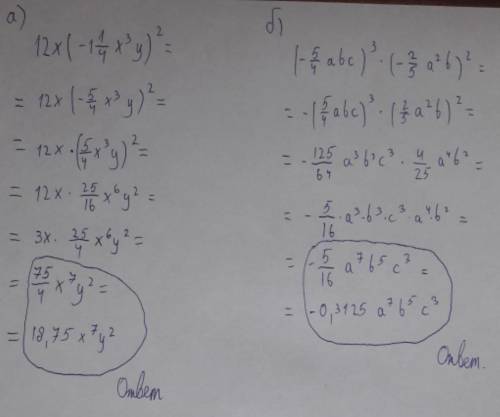 а)
12x(-1 1/4 x³y)² =
= 12x(-5/4 x³y)² =
= 12x·(5/4 x³y)² =
= 12x · 25/16 x⁶y² =
= 3x · 25/4 x⁶y² =
= 75/4 x⁷y² =
= 18,75 x⁷y²
Ответ
б)
(-5/4 abc)³ · (-2/5 a²b)² =
= -(5/4 abc)³ · (2/5 a²b)² =
= -125/64 a³b³c³ · 4/25 a⁴b² =
= -5/16 · a³·b³·c³ · a⁴·b² =
= -5/16 a⁷b⁵c³ =
= -0,3125 a⁷b⁵c³
Ответ.